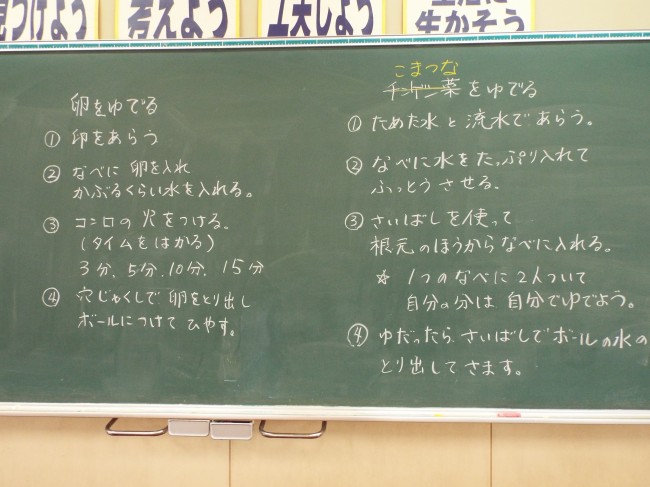 見つけよう
考えよう
工夫しよう
生かそう
卵をゆでる
① 卵をあらう
② なべに 卵を入れ
かぶるくらい水を入れる。
③ コンロの 火をつける。
(タイムをはかる)
3分、5分、10分、15分
④ 穴じゃくしで 卵をとり出し
ボールにつけて ひやす。
こまつな
チンゲン菜をゆでる
① ためた水と 流水であらう。
② なべに水をたっぷり入れて
ふっとうさせる。
③ さいばしを使って
根元のほうからなべに入れる。
☆ 1つのなべに 2人ついて
自分の分は 自分でゆでよう。
④ ゆだったら さいばしでボールの水の
とり出してさます。